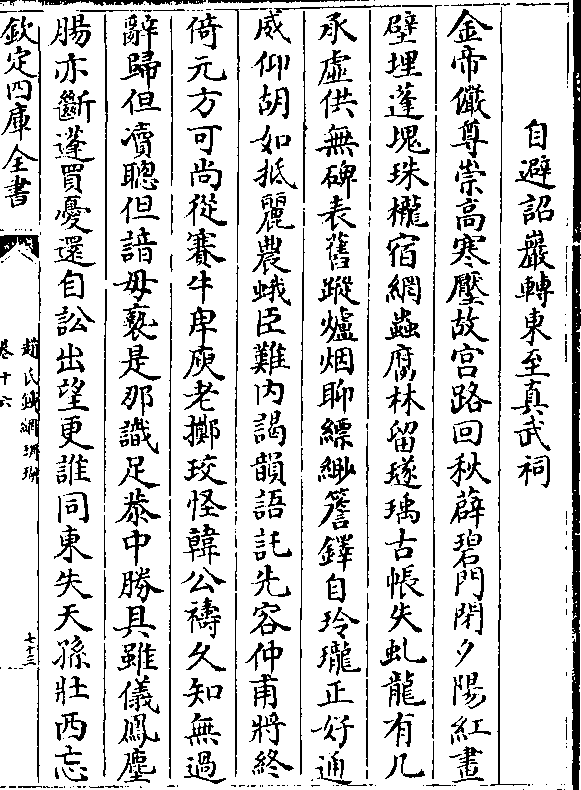 自避詔巖轉東至真武祠
金帝儼尊崇高寒壓故宮路回秋薜碧門閉夕陽紅畫
壁埋蓬塊珠櫳宿網蟲腐林留璲瑀古帳失虬龍有几
承虛供無碑表舊蹤爐烟聊縹緲簷鐸自玲瓏正好通
威仰胡如抵麗農蛾臣難内謁韻語託先容仲甫將終
倚元方可尚從賽牛卑庾老擲珓怪韓公禱久知無過
辭歸但瀆聰但諳毋褻是那識足㳟中勝具雖儀鳳塵
腸亦斷蓬買憂還自訟出望更誰同東失天孫壯西忘
欽定四庫全書
趙氏鐵網珊瑚
卷十六
七十三